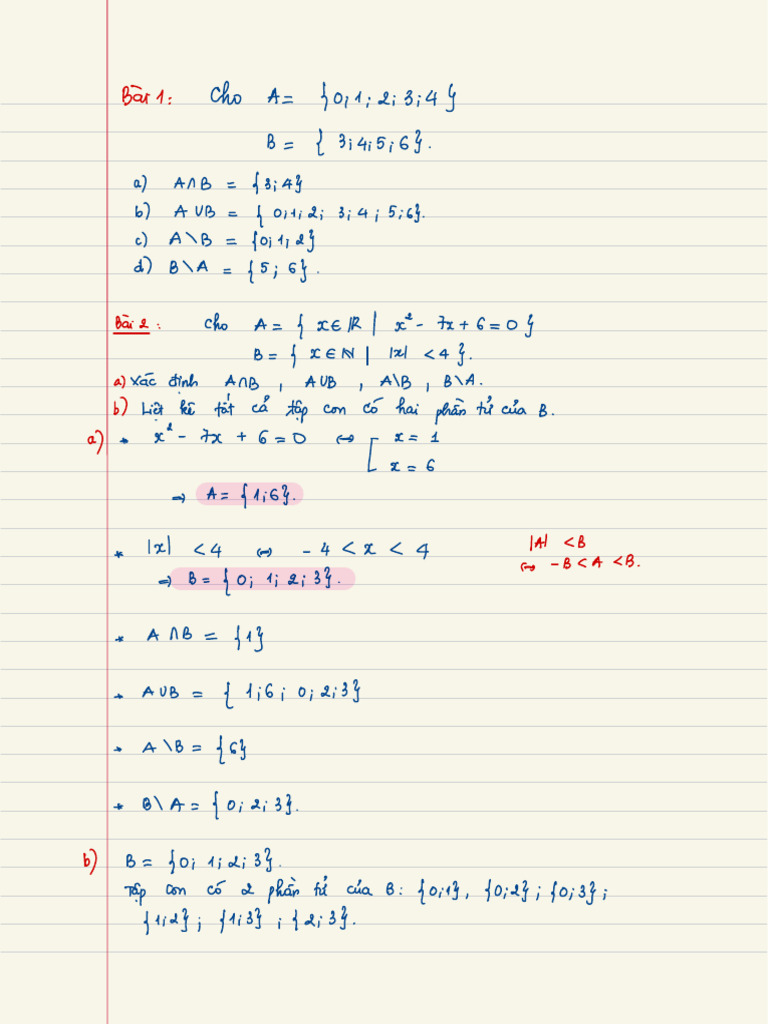 Bài 1: Cho A = {0; 1; 2; 3; 4}
B = { 3; 4; 5; 6}.
a) A∩B = {3; 4}
b) A∪B = { 0; 1; 2; 3; 4; 5; 6}.
c) A\B = {0; 1; 2}
d) B\A = {5; 6}.
Bài 2: Cho A = { x ∈ ℝ | x² - 7x + 6 = 0 }
B = { x ∈ ℕ | |x| < 4 }.
a) Xác định A∩B, A∪B, A\B, B\A.
b) Liệt kê tất cả tập con có hai phần tử của B.
a) * x² - 7x + 6 = 0 ⇔ [ x = 1
x = 6
⇒ A = {1; 6}.
* |x| < 4 ⇔ -4 < x < 4 |A| < B
⇒ B = {0; 1; 2; 3}. ⇔ -B < A < B.
* A∩B = {1}
* A∪B = { 1; 6; 0; 2; 3}
* A\B = {6}
* B\A = {0; 2; 3}.
b) B = {0; 1; 2; 3}.
Tập con có 2 phần tử của B: {0;1}, {0;2}; {0;3};
{1;2}; {1;3}; {2;3}.